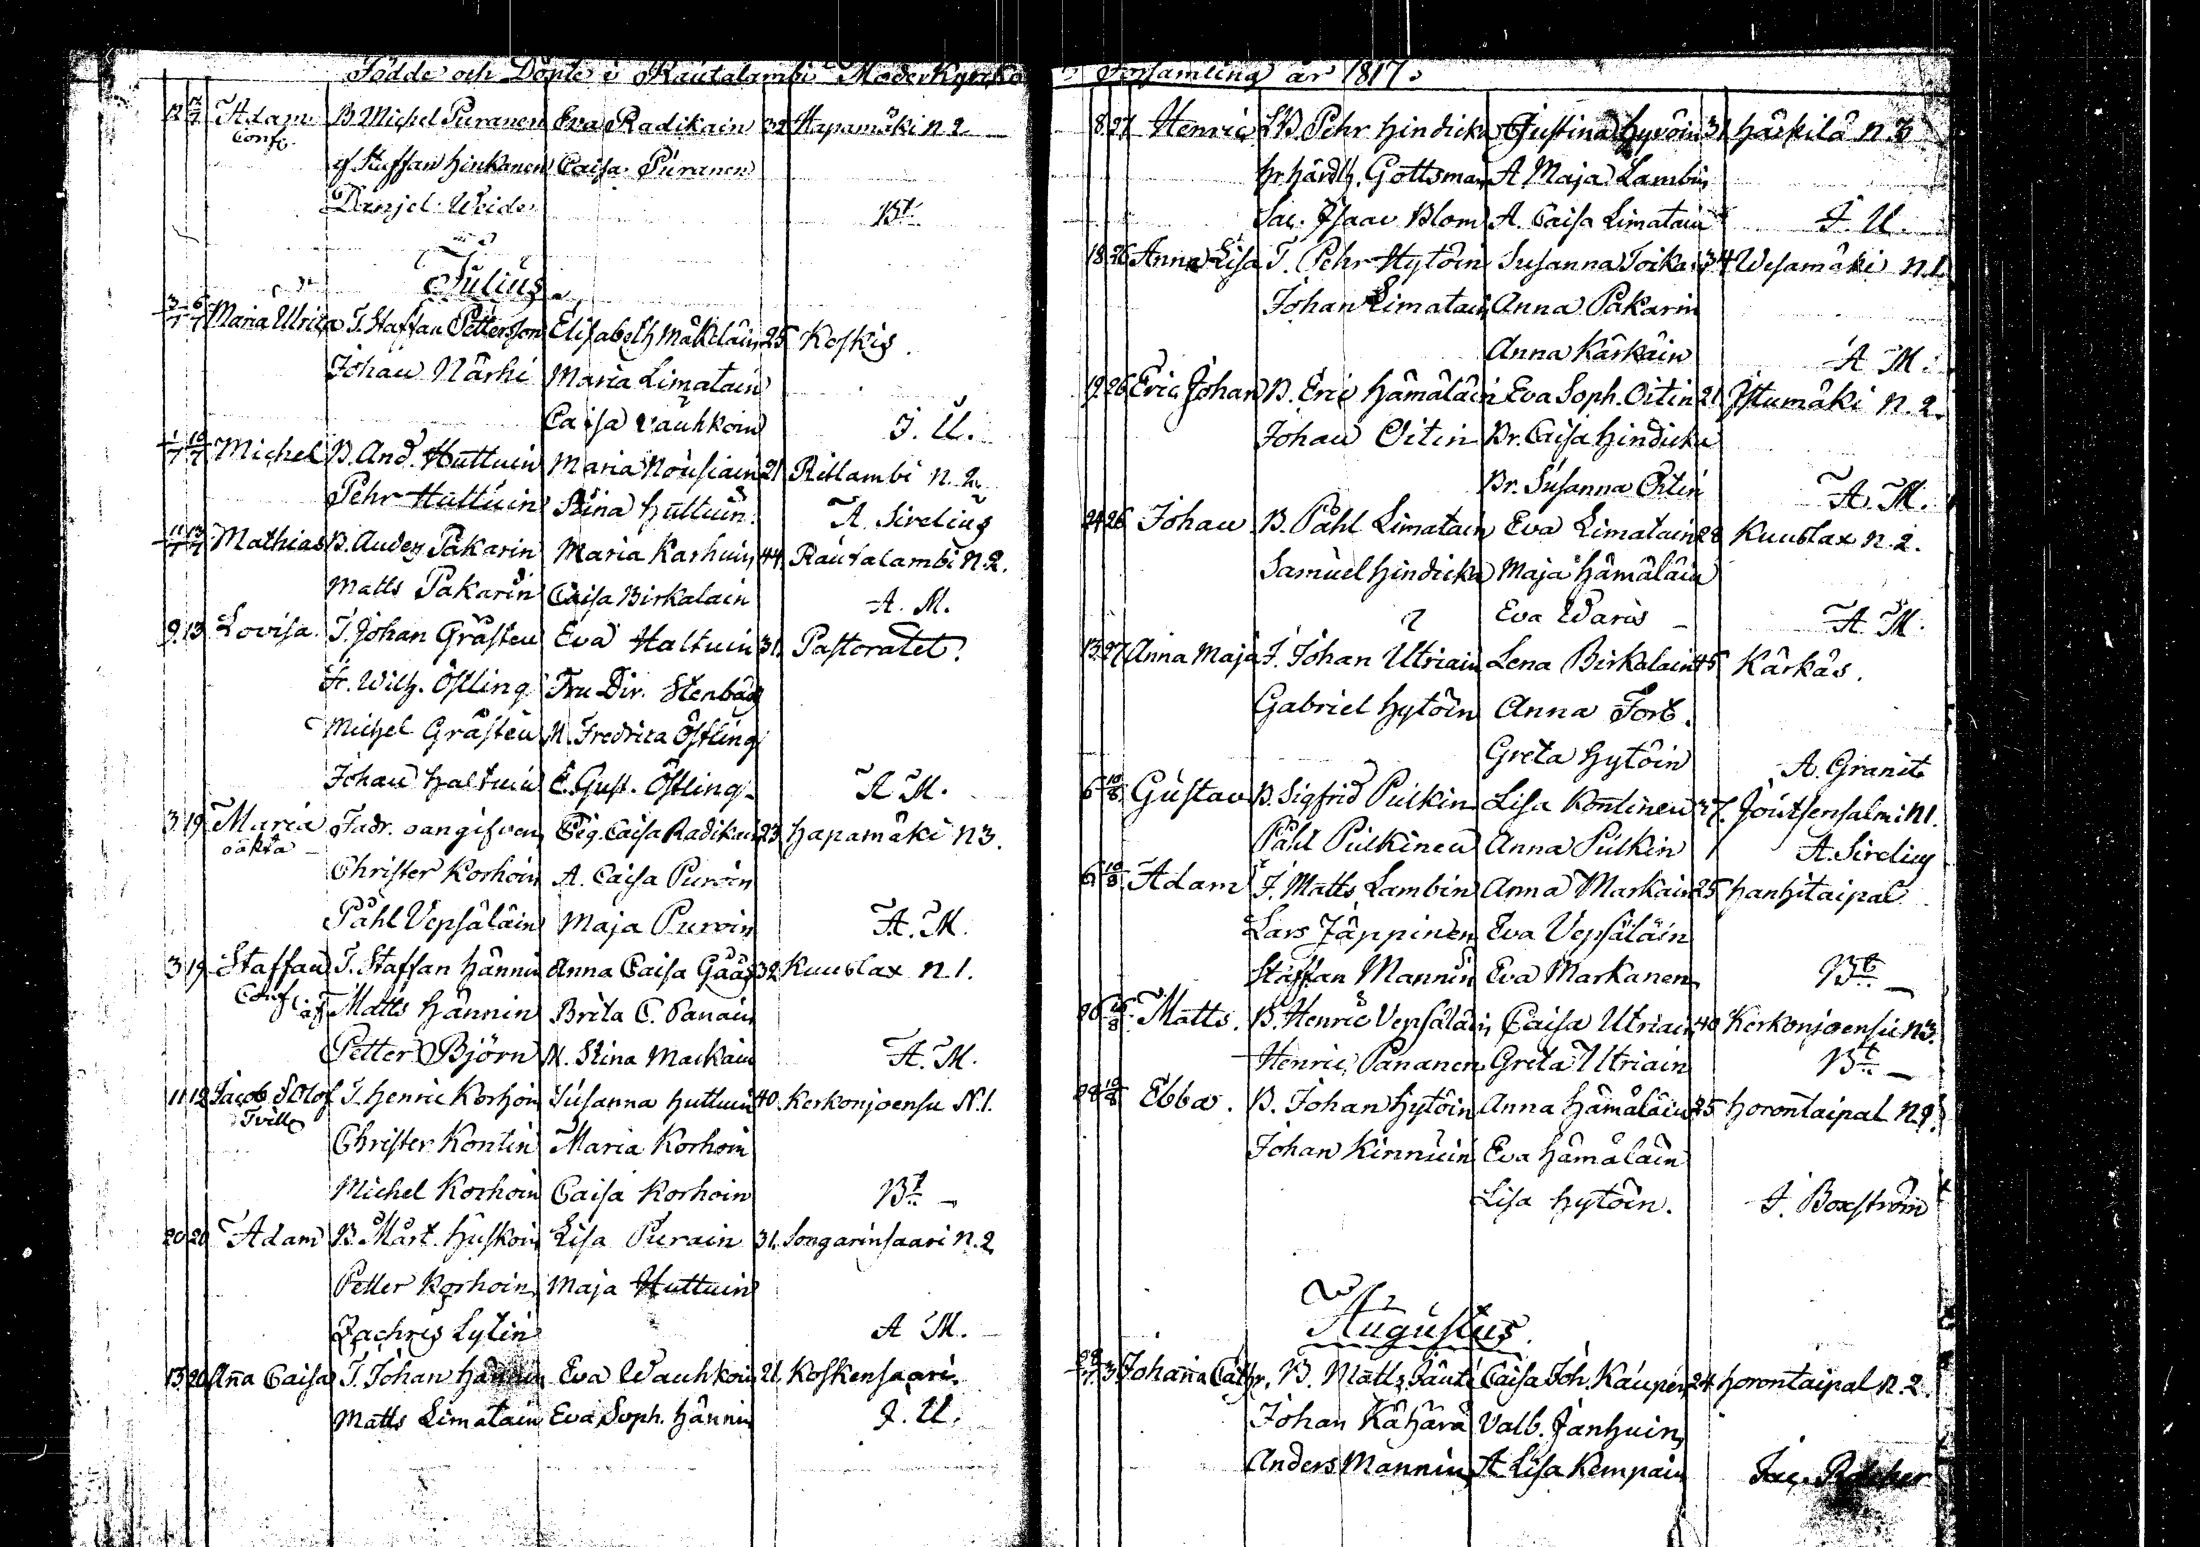 Födde och Döpte i Rautalambi Moder Kyrko
12 12/7 Adam B. Michel Puranen Eva Radikain 32 Hapamäki n 2
Conf. gf. Staffan Hinkanen Caisa Puranen
Danjel Weide Bt
Julius
3/7 6/7 Maria Ulrica T. Staffan Pettersson Elisabeth Mäkeläin 25 Koskis
Johan Närhi Maria Limatain
Caisa Vauhkoin J. U.
1/7 10/7 Michel B. And. Huttuin Maria Nousiain 21 Ritlambi n. 2.
Pehr Huttuin Stina Huttuin A. Sirelius
11/7 13/7 Mathias B. Anders Pakarin Maria Karhuin 44 Rautalambi N. 2.
Matts Pakarin Caisa Birkalain A. M.
9. 13 Lovisa. T. Johan Gråsten Eva Haltuin 31. Pastoratet.
Hr. Wilh. Östling Fru Dir. Stenbäck
Michel Gråsten M. Fredrica Östling
Johan Haltuin E. Gust. Östling A M.
3 19 Maria Fadr. oangifven Pig. Caisa Radikain 23 Hapamäki N 3.
oäkta Christer Korhoin A. Caisa Purvin
Påhl Vepsäläin Maja Purvin A. M.
3 19 Staffan T. Staffan Hännin Anna Caisa Gåås 32 Kuuslax n. 1.
Matts Hännin Brita C. Panain
Petter Björn M. Stina Markain A. M.
11 12 Jacob & Olof T. Henric Korhoin Susanna Huttuin 40. Kerkonjoensu N. 1.
Tvill. Christer Kontin Maria Korhoin
Michel Korhoin Caisa Korhoin Bt
20 20 Adam B. Mårt. Huskoin Lisa Purain 31. Songarinsaari n. 2
Petter Korhoin Maja Huttuin
Zachris Lytin A M.
13 20 Anna Caisa T. Johan Hännin Eva Wauhkoin 21. Koskensaari.
Matts Limatain Eva Soph. Hännin J. U.
Församling år 1817.
8 27 Henric B. Pehr Hindickn Justina Hyvöin 31 Häckilä n. 3
Hr Hårdh. Gottsman A Maja Lambin
Jac. Isaac Blom A. Caisa Limatain J. U.
18 26 Anna Lisa T. Pehr Hytöin Susanna Toika 34 Wesamäki n. 1.
Johan Limatain Anna Pakarin
Anna Kärkäin A M.
19 26 Eric Johan B. Eric Hämäläin Eva Soph. Oitin 21 Istumäki N. 2.
Johan Oitin Br. Caisa Hindickn
Br. Susanna Oitin A. M.
24 26 Johan B. Påhl Limatain Eva Limatain 28 Kuuslax n. 2.
Samuel Hindickn Maja Hämäläin
Eva Waris A M.
13 27 Anna Maja T. Johan Utriain Lena Birkalain 45 Kärkäs.
Gabriel Hytöin Anna Fort.
Greta Hytöin A. Granit
6 10/8 Gustav B. Sigfrid Pulkin Lisa Kontinen 37. Joutsensalmi N 1.
Påhl Pulkinen Anna Pulkin A. Sirelius
6 10/8 Adam T. Matts Lambin Anna Markain 25 Hanhitaipal
Lars Jäppinen Eva Vepsäläin
Staffan Mannin Eva Markanen Bt
26 10/8 Matts. B. Henric Vepsäläin Caisa Utriain 40 Kerkonjoensu N 3.
Henric Pananen Greta Utriain Bt
28 10/8 Ebba. B. Johan Hytöin Anna Hämäläin 25 Horontaipal N. 9.
Johan Kinnuin Eva Hämäläin
Lisa Hytöin. J. Boxström
Augustus.
28/7 3 Johanna Cathr. B. Matts Jäuti Caisa Joh. Kaupin 24 Horontaipal n. 2.
Johan Kähärä Valb. Janhuin
Anders Mannin A Lisa Kempain